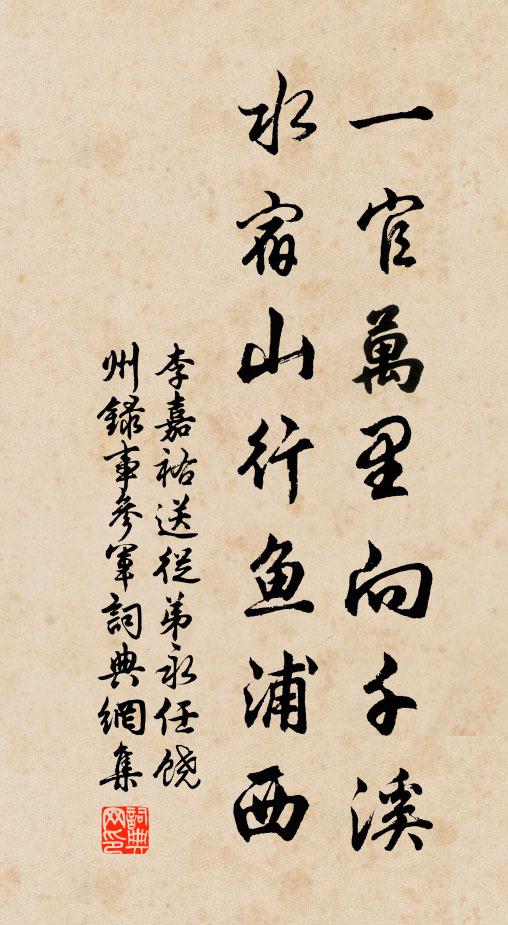 一官萬里向千溪
水宿山行鱼浦西
李嘉祐送從弟永任饒
州録事參軍詞典網集
詞典网印